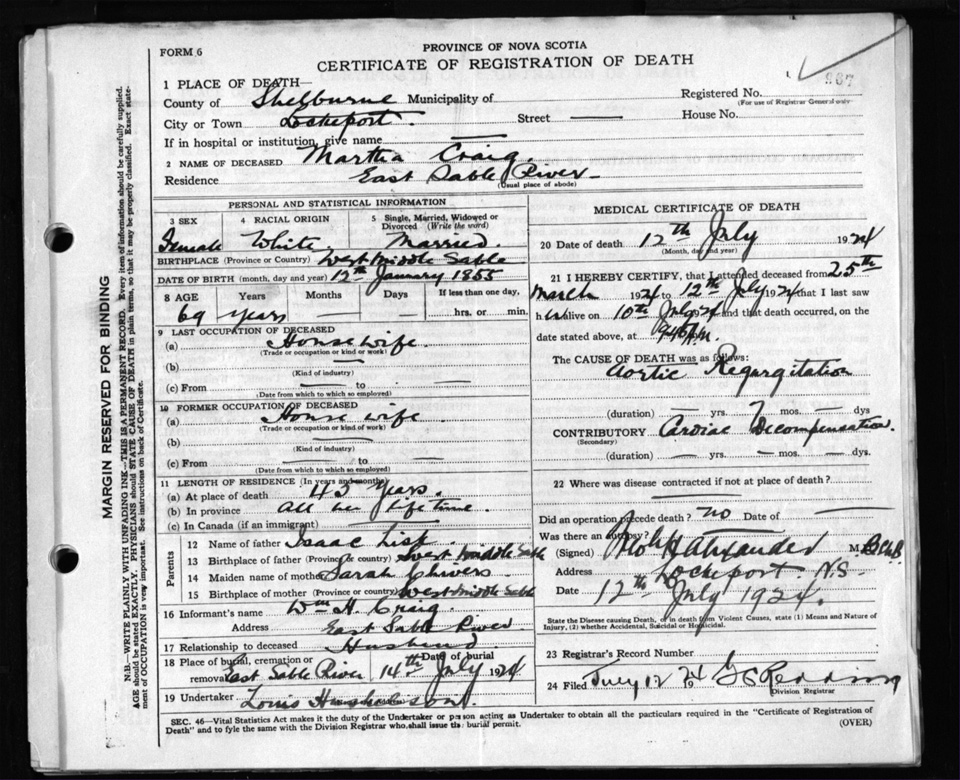 FORM 6
PROVINCE OF NOVA SCOTIA
CERTIFICATE OF REGISTRATION OF DEATH
967
1 PLACE OF DEATH—
County of Shelburne Municipality of
Registered No.
(For use of Registrar General only
City or Town Lockeport. Street —
House No.
If in hospital or institution, give name —
2 NAME OF DECEASED Martha Craig.
Residence East Sable River—
(Usual place of abode)
PERSONAL AND STATISTICAL INFORMATION
3 SEX 4 RACIAL ORIGIN 5 Single, Married, Widowed or Divorced (Write the word)
Female White Married.
BIRTHPLACE (Province or Country) West Middle Sable
DATE OF BIRTH (month, day and year) 12th January 1855
8 AGE Years Months Days If less than one day,
69 years — — hrs. or min.
9 LAST OCCUPATION OF DECEASED
(a) House wife.
(Trade or occupation or kind or work)
(b) —
(Kind of industry)
(c) From — to —
(Date from which to which so employed)
10 FORMER OCCUPATION OF DECEASED
(a) House wife
(Trade or occupation or kind of work)
(b) —
(Kind of industry)
(c) From — to —
(Date from which to which so employed)
11 LENGTH OF RESIDENCE (In years and months)
(a) At place of death 45 Years.
(b) In province All her life time.
(c) In Canada (if an immigrant) —
Parents
12 Name of father Isaac Lisk
13 Birthplace of father (Province or country) West Middle Sable
14 Maiden name of mother Sarah Chivers
15 Birthplace of mother (Province or country) West Middle Sable
16 Informant's name Wm H. Craig.
Address East Sable River
17 Relationship to deceased Husband
18 Place of burial, cremation or removal Date of burial
East Sable River 14th July 1924
19 Undertaker Louis
MEDICAL CERTIFICATE OF DEATH
20 Date of death 12th July 1924
(Month, day and year)
21 I HEREBY CERTIFY, that I attended deceased from 25th
March 1924 to 12th July 1924 that I last saw
her alive on 10th July 1924 and that death occurred, on the
date stated above, at m.
The CAUSE OF DEATH was as follows:
Aortic Regurgitation
(duration) — yrs. 7 mos. — dys
CONTRIBUTORY Cardiac Decompensation.
(Secondary)
(duration) — yrs. — mos. — dys.
22 Where was disease contracted if not at place of death?
—
Did an operation precede death? No Date of —
Was there an autopsy?
(Signed) H Alexander M.B. Ch.B.
Address Lockeport. N.S.
Date 12th July 1924.
State the Disease Causing Death, or in death from Violent Causes, state (1) Means and Nature of
Injury, (2) whether Accidental, Suicidal or Homicidal.
23 Registrar's Record Number
24 Filed July 12 1924
Division Registrar
SEC. 46—Vital Statistics Act makes it the duty of the Undertaker or person acting as Undertaker to obtain all the particulars required in the "Certificate of Registration of
Death" and to fyle the same with the Division Registrar who shall issue the burial permit. (OVER)
MARGIN RESERVED FOR BINDING
N.B.—WRITE PLAINLY WITH UNFADING INK—THIS IS A PERMANENT RECORD. Every item of information should be carefully supplied.
AGE should be stated EXACTLY. PHYSICIANS should STATE CAUSE OF DEATH in plain terms, so that it may be properly classified. Exact state-
ment of OCCUPATION is very important. See instructions on back of Certificate.